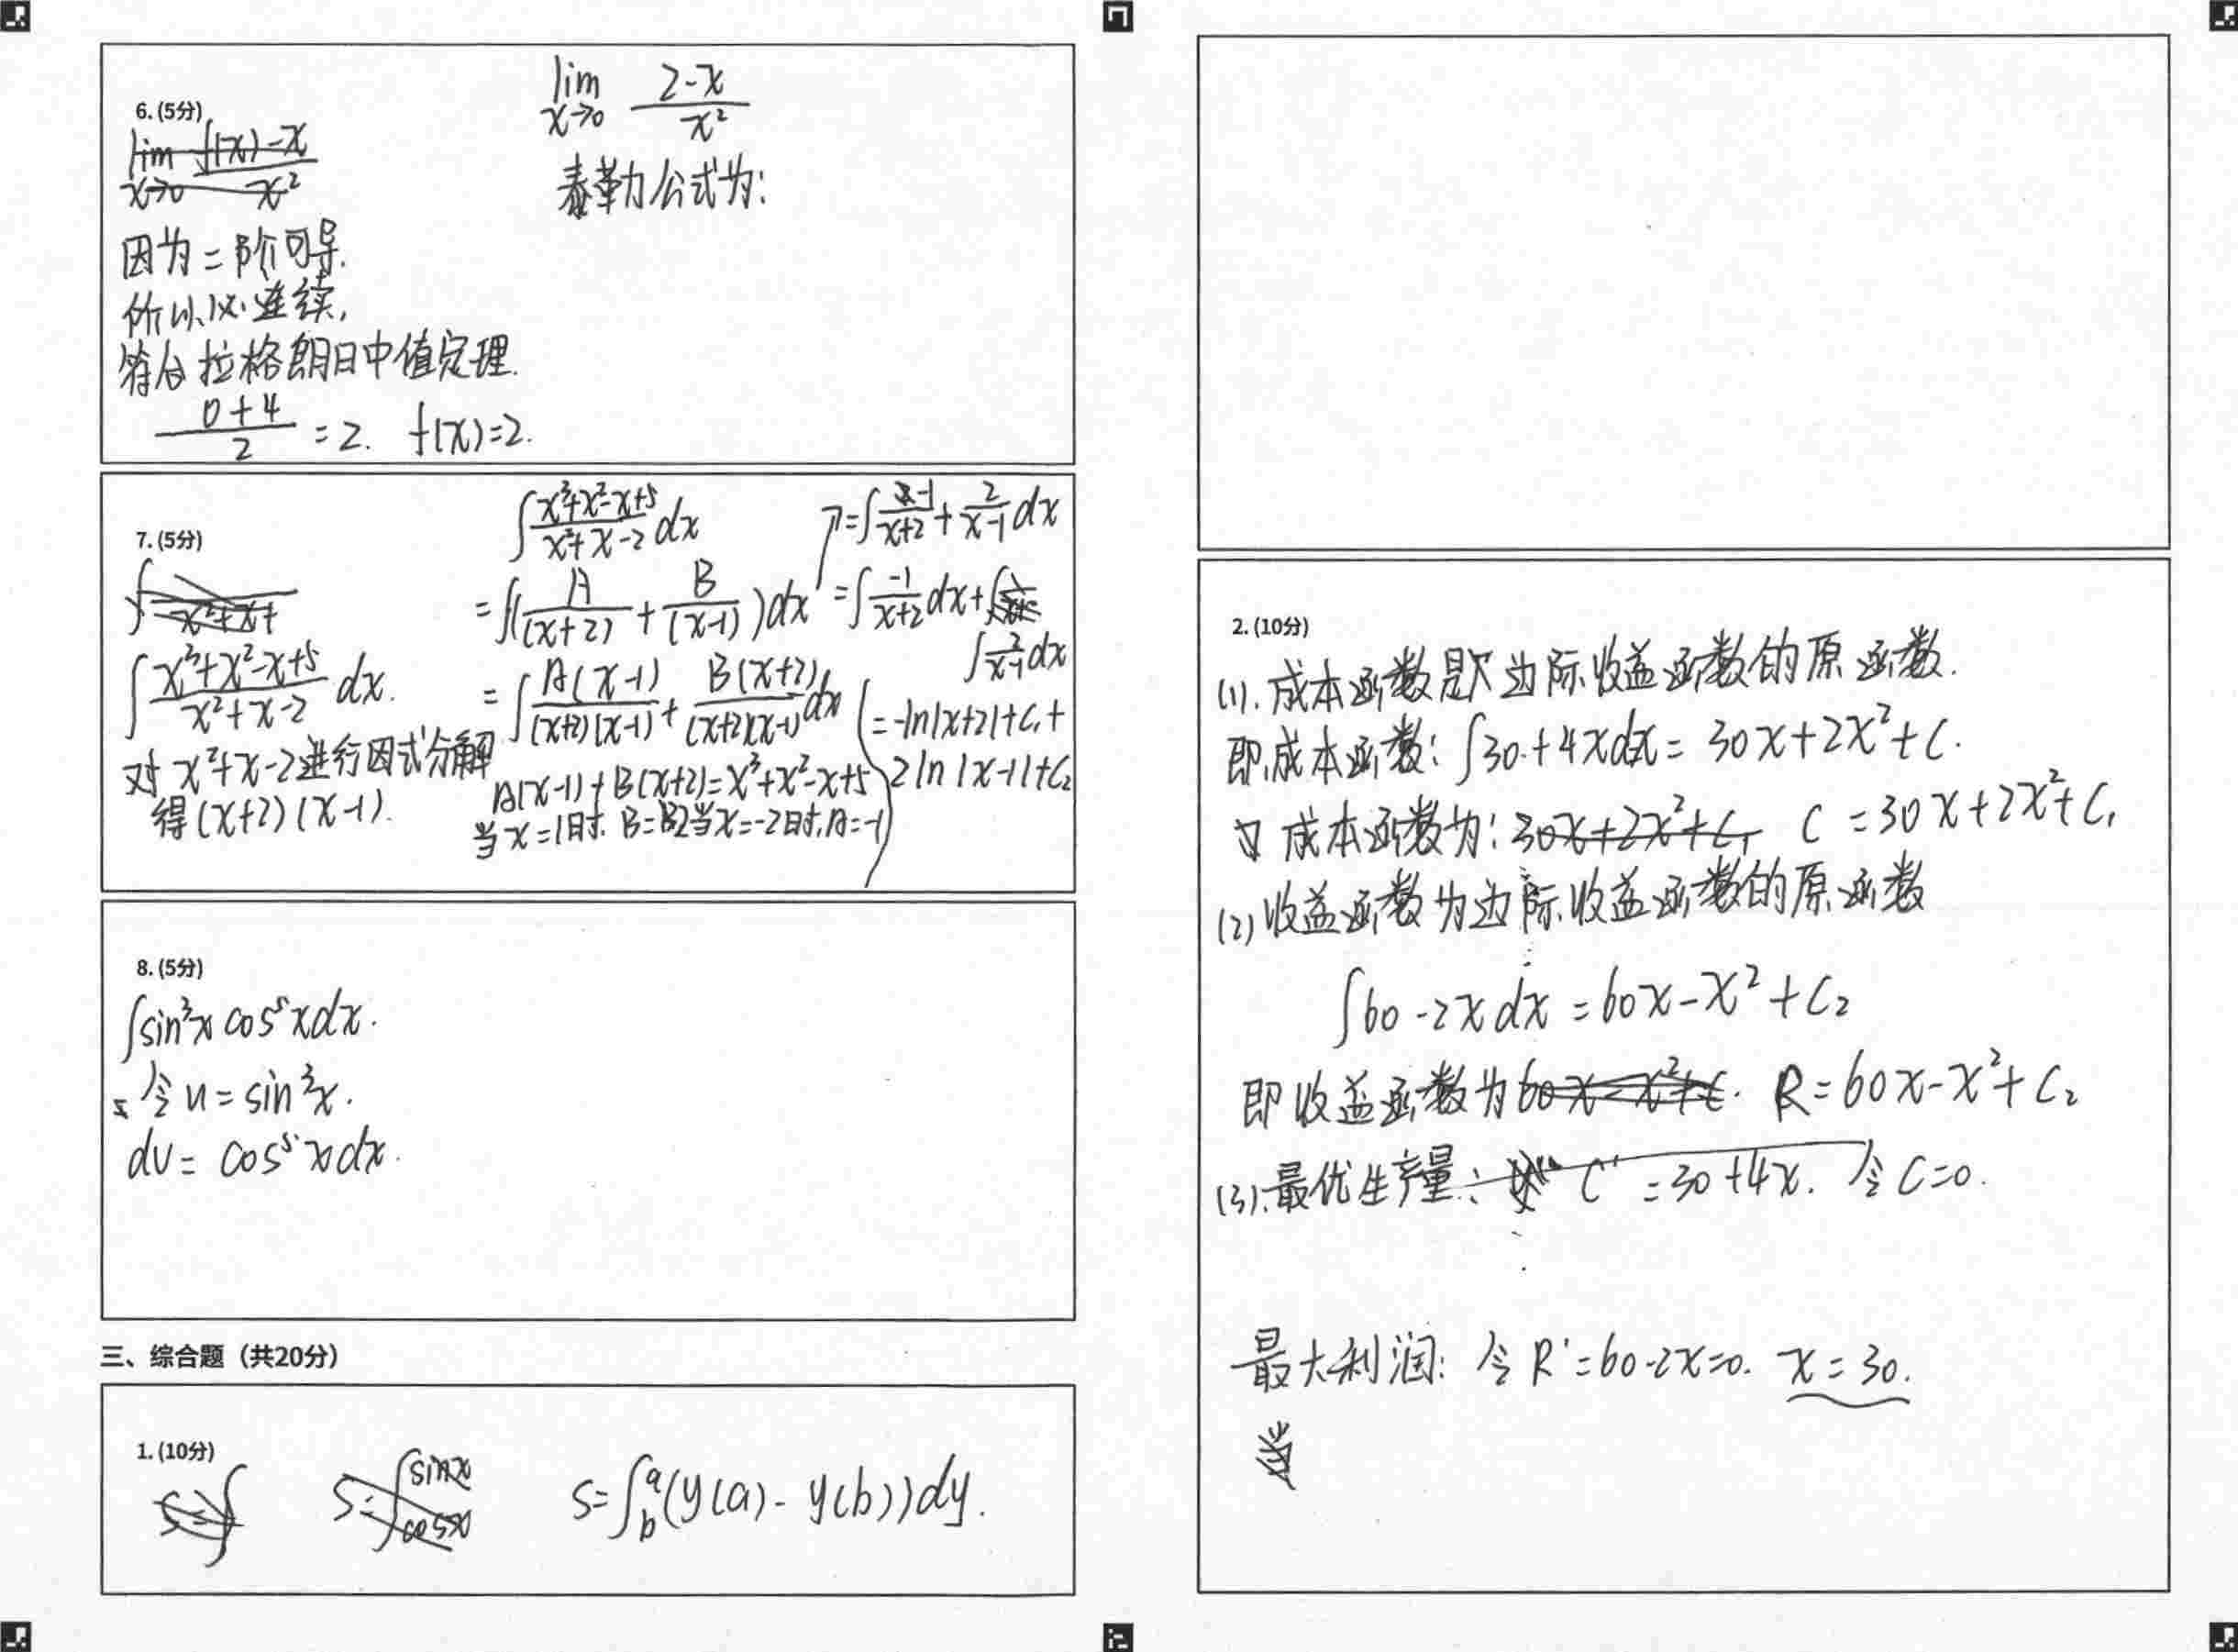 6. (5分)
lim x→0 (f(x)-x)/x²
因为二阶可导.
所以必连续,
符合拉格朗日中值定理.
(0+4)/2 = 2. f(x)=2.
lim x→0 (2-x)/x²
泰勒公式为:
7. (5分)
∫ x²+x+
∫ (x³+x²-x+5)/(x²+x-2) dx.
对 x²+x-2 进行因式分解
得 (x+2)(x-1).
∫ (x³+x²-x+5)/(x²+x-2) dx
= ∫( A/(x+2) + B/(x-1) )dx
= ∫ A(x-1)/((x+2)(x-1)) + B(x+2)/((x+2)(x-1)) dx
A(x-1)+B(x+2)=x³+x²-x+5
当 x=1时. B=2 当x=-2时, A=-1
= ∫ -1/(x+2) + 2/(x-1) dx
= ∫ -1/(x+2) dx + ∫ 2/(x-1) dx
= -ln|x+2|+C₁+
2ln|x-1|+C₂
8. (5分)
∫sin³x cos⁵x dx.
令 u = sin³x.
dv = cos⁵x dx.
三、综合题（共20分）
1. (10分)
S=∫
S=∫ sinx cosx
S=∫_b^a (y(a) - y(b))dy.
2. (10分)
(1). 成本函数是边际收益函数的原函数.
即成本函数: ∫30+4xdx = 30x+2x²+C.
成本函数为: 30x+2x²+C₁ C = 30x+2x²+C₁
(2) 收益函数为边际收益函数的原函数
∫60-2x dx = 60x-x²+C₂
即收益函数为 60x-x²+C. R = 60x-x²+C₂
(3). 最优生产量: C' = 30+4x. 令 C=0.
最大利润: 令 R'=60-2x=0. x=30.
当